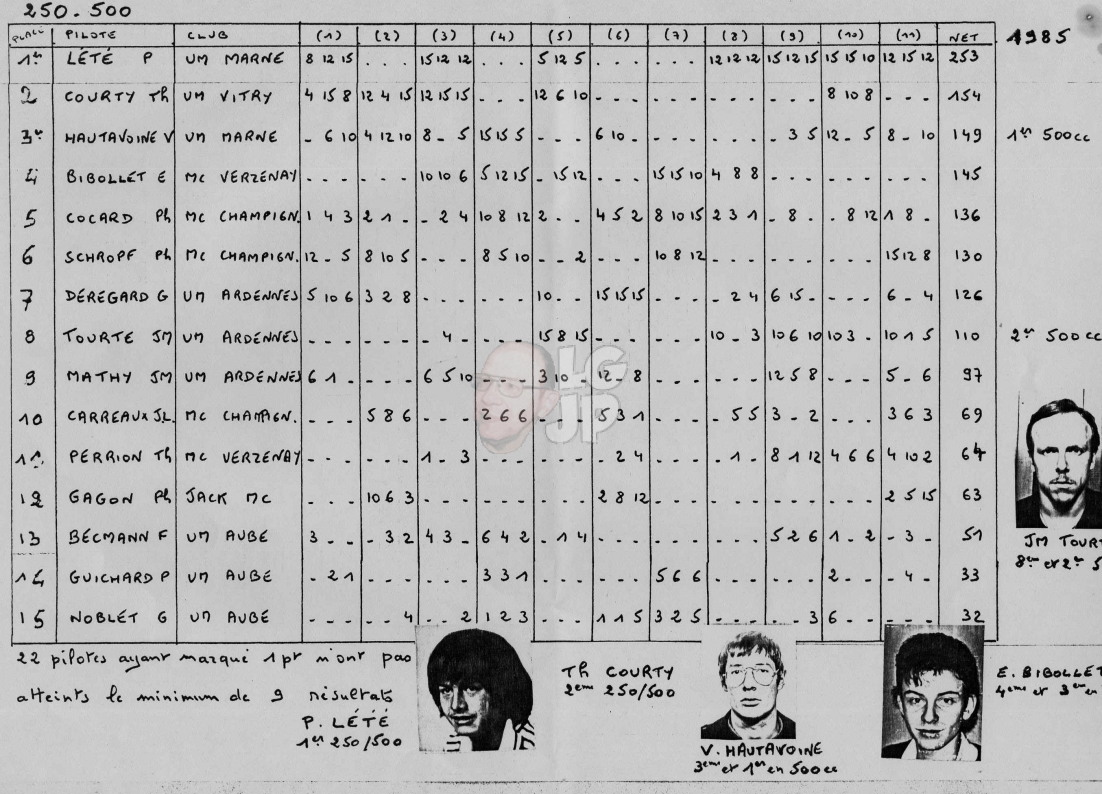 250.500
PLACE PILOTE CLUB (1) (2) (3) (4) (5) (6) (7) (8) (9) (10) (11) NET 1985
1er LÉTÉ P UM MARNE 8 12 15 . . . 15 12 12 . . . 5 12 5 . . . . . . 12 12 12 15 12 15 15 15 10 12 15 12 253
2 COURTY Th UM VITRY 4 15 8 12 4 15 12 15 15 . . . 12 6 10 - - - - - - - - - - - - 8 10 8 - - - 154
3e HAUTAVOINE V UM MARNE - 6 10 4 12 10 8 - 5 15 15 5 - - - 6 10 - - - - - - - - 3 5 12 - 5 8 - 10 149 1er 500cc
4 BIBOLLET E MC VERZENAY - - - - - - 10 10 6 5 12 15 - 15 12 - - - 15 15 10 4 8 8 - - - - - - - - - 145
5 COCARD Ph MC CHAMPIGN. 1 4 3 2 1 - - 2 4 10 8 12 2 - - 4 5 2 8 10 15 2 3 1 - 8 - - 8 12 1 8 - 136
6 SCHROPF Ph MC CHAMPIGN. 12 - 5 8 10 5 - - - 8 5 10 - - 2 - - - 10 8 12 - - - - - - - - - 15 12 8 130
7 DEREGARD G UM ARDENNES 5 10 6 3 2 8 - - - - - - 10 - - 15 15 15 - - - - 2 4 6 15 - - - - 6 - 4 126
8 TOURTE JM UM ARDENNES - - - - - - - 4 - - - - 15 8 15 - - - - - - 10 - 3 10 6 10 10 3 - 10 1 5 110 2e 500cc
9 MATHY JM UM ARDENNES 6 1 - - - - 6 5 10 - - - 3 10 - 12 - 8 - - - - - - 12 5 8 - - - 5 - 6 97
10 CARREAUX JL. MC CHAMPAGN. - - - 5 8 6 - - - 2 6 6 - - - 5 3 1 - - - - 5 5 3 - 2 - - - 3 6 3 69
11 PERRION Th MC VERZENAY - - - - - - 1 - 3 - - - - - - - 2 4 - - - - 1 - 8 1 12 4 6 6 4 10 2 64
12 GAGON Ph JACK MC - - - 10 6 3 - - - - - - - - - 2 8 12 - - - - - - - - - - - - 2 5 15 63
13 BÉCMANN F UM AUBE 3 - - - 3 2 4 3 - 6 4 2 - 1 4 - - - - - - - - - 5 2 6 1 - 2 - 3 - 51
14 GUICHARD P UM AUBE - 2 1 - - - - - - 3 3 1 - - - - - - 5 6 6 - - - - - - 2 - - - 4 - 33
15 NOBLET G UM AUBE - - - - - 4 - - 2 1 2 3 - - - 1 1 5 3 2 5 - - - - - 3 6 - - - - - 32
JM TOURT
8eme et 2em 5
22 pilotes ayant marqué 1pt n'ont pas
atteints le minimum de 9 résultats
P. LÉTÉ
1er 250/500
Th COURTY
2eme 250/500
V. HAUTAVOINE
3eme et 1er en 500cc
E. BIBOLLET
4eme et 3em en
LG
JP